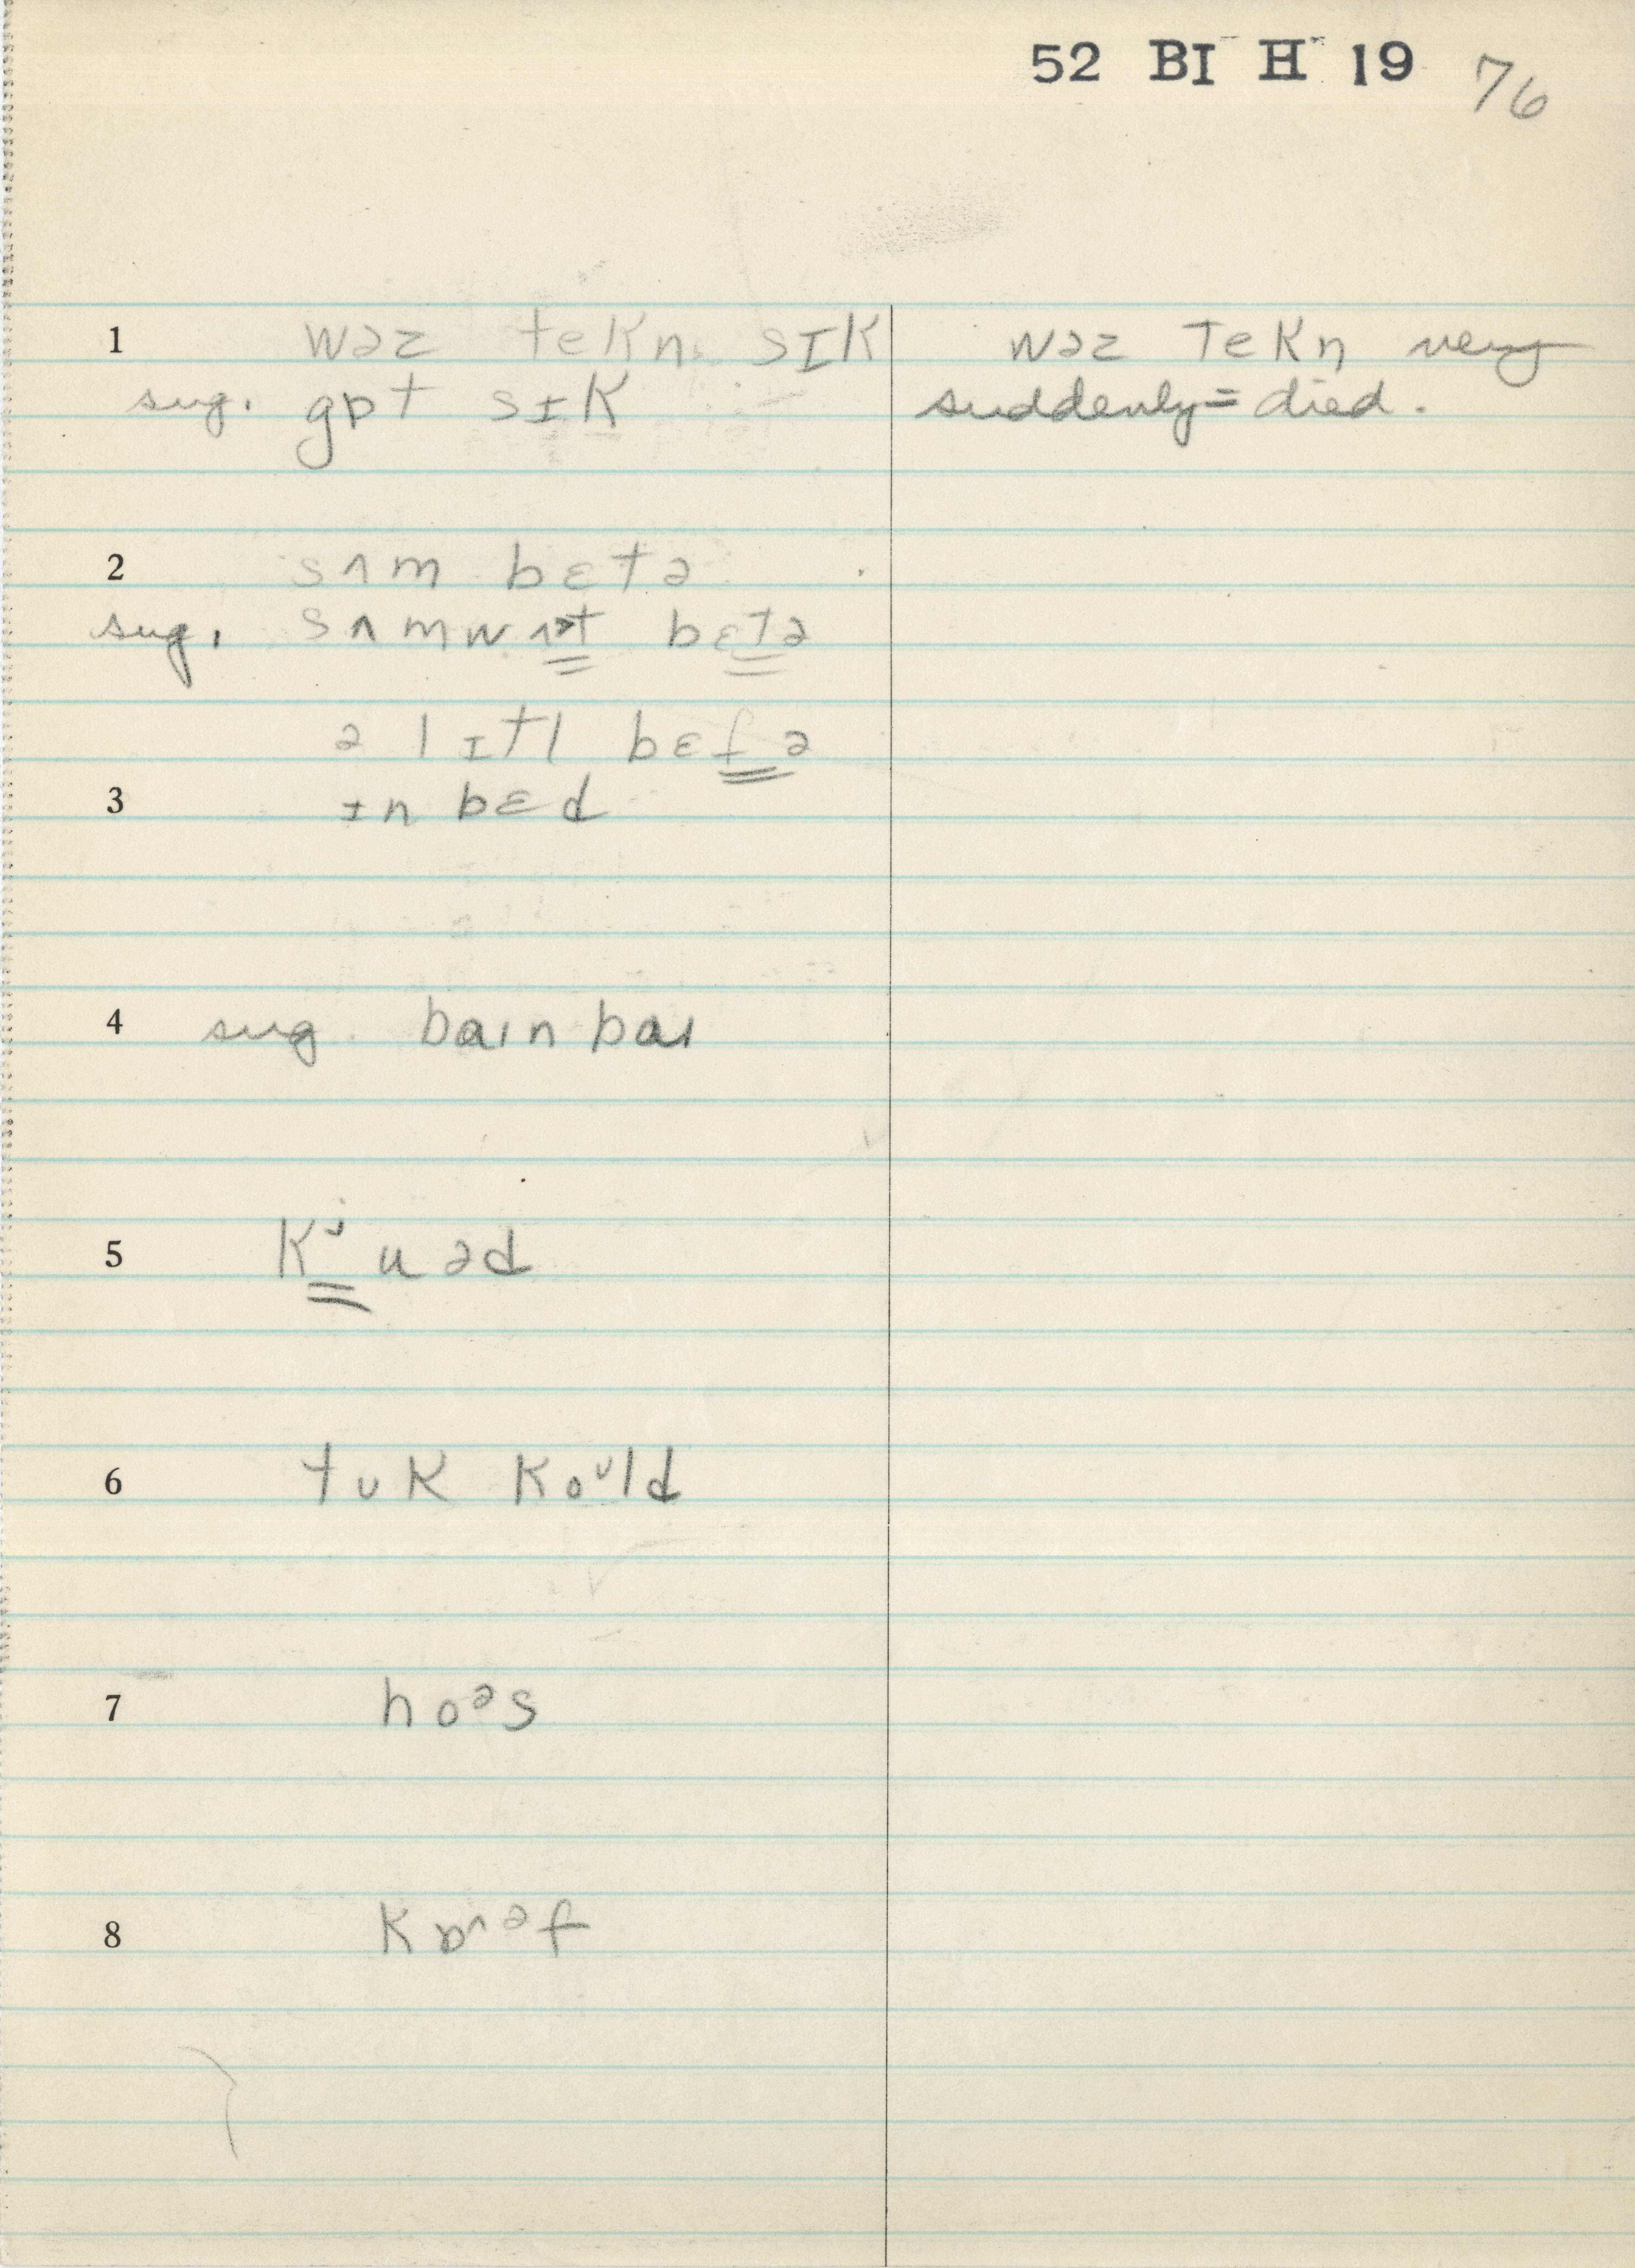 52 BI H 19 76
1 wəz tekn sɪk
wəz tekn very
sug. gɒt sɪk
suddenly = died.
2 sʌm bɛtə
sug. sʌmwʌt bɛtə
ə lɪtl bɛtə
3 ɪn bɛd
4 sug. baɪn baɪ
5 kʲuəd
6 tʊk koᶷld
7 hoᵊs
8 kɒᵊf